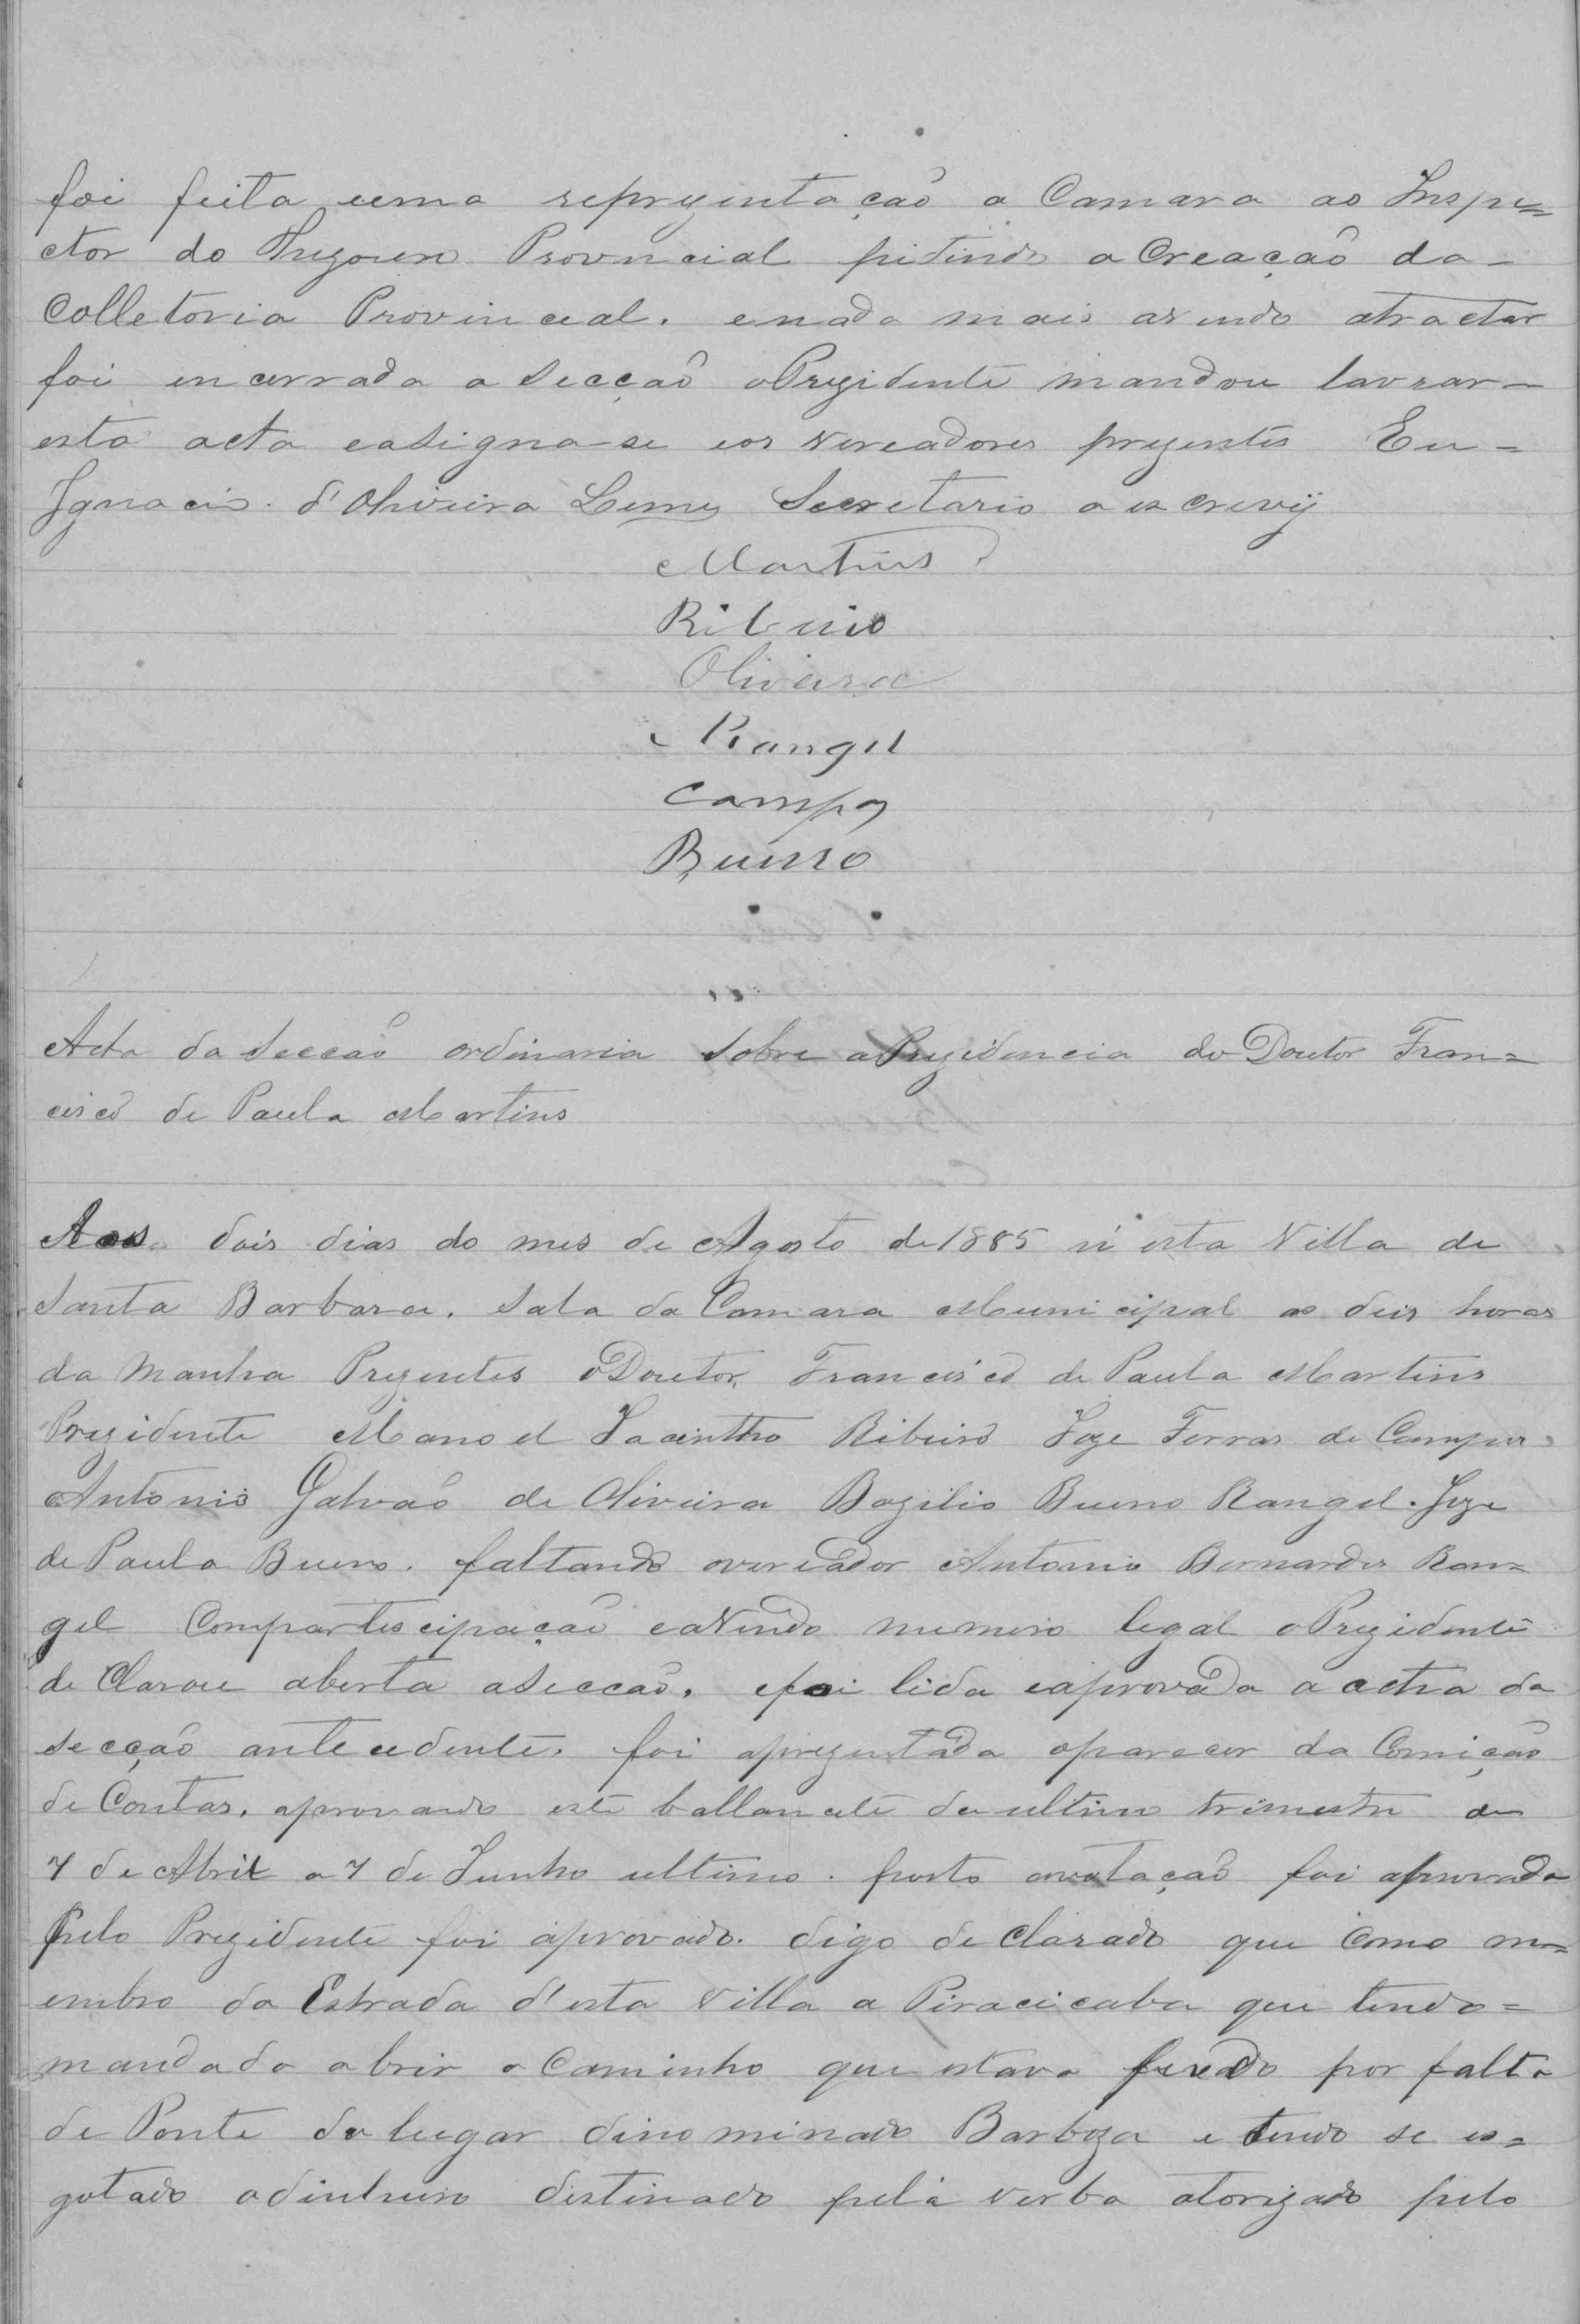 foi feita uma reprezentação a Camara ao Inspe=
ctor do Thezouro Provincial pidindo a Creação da-
Colletoria Provincial. enada mais avendo atractar
foi encerrada a Secção oPrezidente mandou lavrar-
esta acta eaSigna-se eos Vereadores prezentes Eu-
Ignacio d'Oliveira Leme Secretario a escrevij
Martins
Ribeiro
Oliveira
Rangel
Campos
Bueno
Acta da Secção ordinaria Sobre aPrezidencia do Doutor Fran=
cisco de Paula Martins
Aos dois dias do mes de Agosto de 1885 n'esta Villa de
Santa Barbara. Sala da Camara Municipal as deis horas
da Manha Prezentes oDoutor Francisco de Paula Martins
Prezidente Manoel Jacintho Ribeiro Joze Ferras de Campos
Antonio Galvaõ de Oliveira Bazilio Bueno Rangel. Joze
de Paula Bueno. faltando overeador Antonio Bernardes Ran=
gel Compartescipação eaVendo numero legal oPrezidente
de Clarou aberta aSecção. efoi lida eaprovada a acta da
Secção antecedente. foi aprezentada oparecer da Comição
de Contas. aprovando este ballancete do ultimo trimestre de
7 de Abril a 7 de Junho ultimo. posto avotação foi aprovado
Pelo Prezidente foi aprovado. digo de Clarado que Como m=
embro da Estrada d'esta Villa a Piracicaba que tendo=
mandado abrir o Caminho que estava por falta
de Ponte do lugar dinominado Barboza e tendo se es=
gotado odinheiro distinado pela verba atorizado pelo